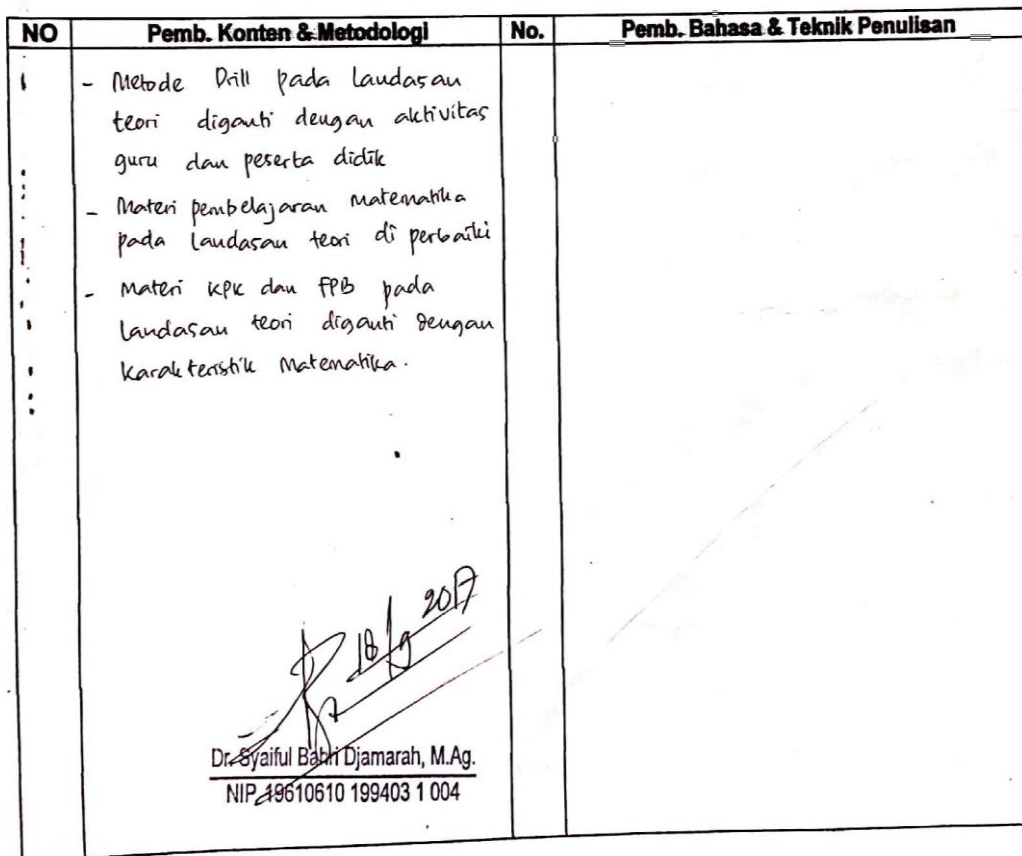 NO Pemb. Konten & Metodologi No. Pemb. Bahasa & Teknik Penulisan
1 - Metode Drill pada landasan
teori diganti dengan aktivitas
guru dan peserta didik
- Materi pembelajaran matematika
pada landasan teori di perbaiki
- Materi KPK dan FPB pada
landasan teori diganti dengan
karakteristik Matematika.
18/9 2017
Dr. Syaiful Bahri Djamarah, M.Ag.
NIP. 19610610 199403 1 004